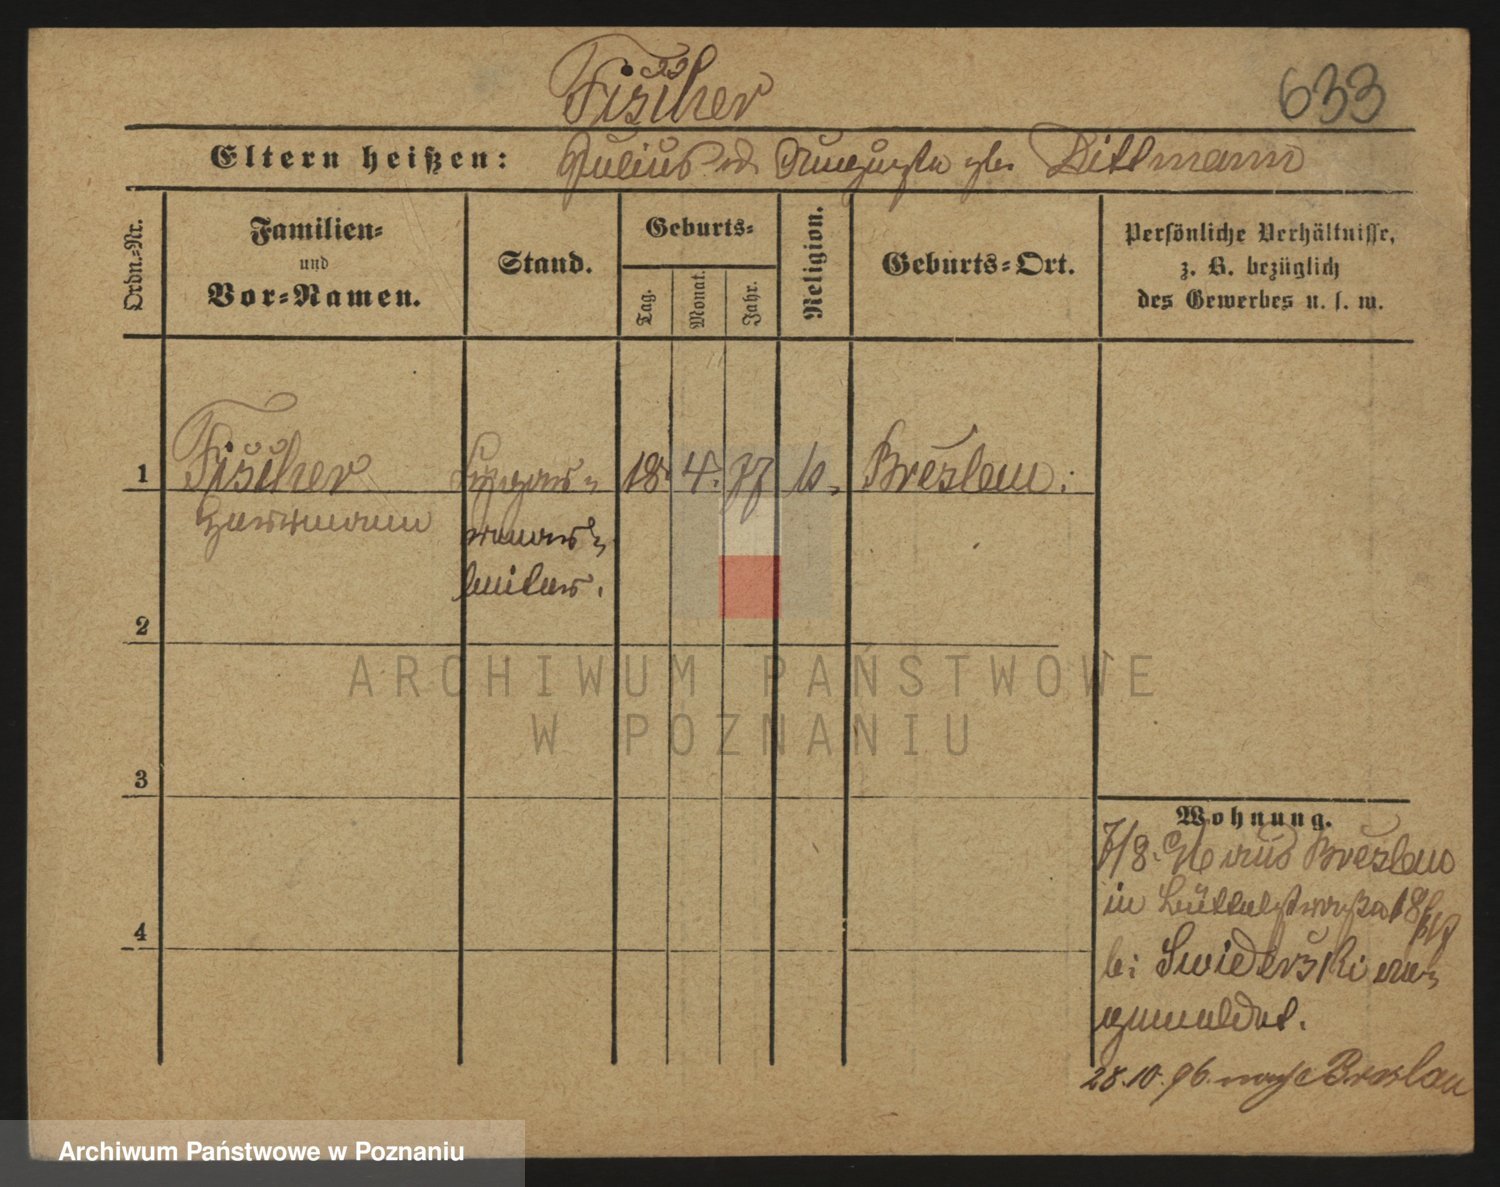 Fischer
633
Eltern heißen: Julius u. Auguste geb. Dittmann
Ordn.-Nr.
Familien-
und
Vor-Namen.
Stand.
Geburts-
Tag.
Monat.
Jahr.
Religion.
Geburts-Ort.
Persönliche Verhältnisse,
z. B. bezüglich
des Gewerbes u. s. w.
1 Fischer 18. 4. 77 Breslau.
Herrmann
arbeiter.
2
3
4
Wohnung.
/8. 96 aus Breslau
in 18
bei Swiderski an-
gemeldet.
28.10.96. nach Breslau
ARCHIWUM PAŃSTWOWE
W POZNANIU
Archiwum Państwowe w Poznaniu